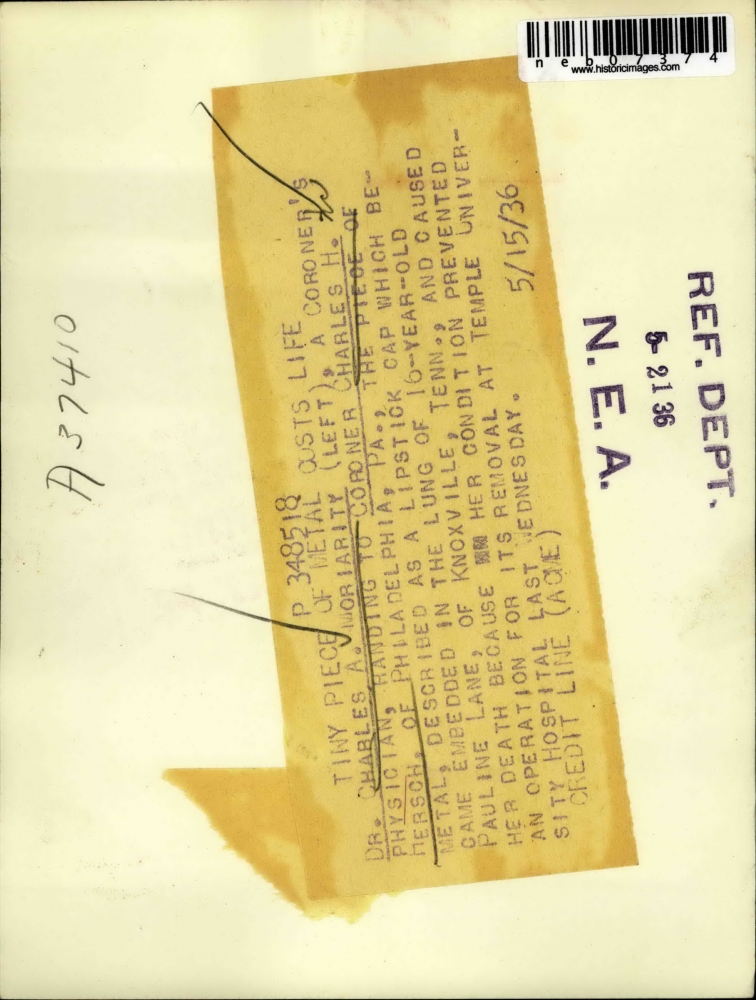 A 37410
P 348518
TINY PIECE OF METAL COSTS LIFE
DR. CHARLES A. MORIARITY (LEFT), A CORONER'S
PHYSICIAN, HANDING TO CORONER CHARLES H.
HERSCH, OF PHILADELPHIA, PA., THE PIECE OF
METAL, DESCRIBED AS A LIPSTICK CAP WHICH BE-
CAME EMBEDDED IN THE LUNG OF 16-YEAR-OLD
PAULINE LANE, OF KNOXVILLE, TENN., AND CAUSED
HER DEATH BECAUSE HER CONDITION PREVENTED
AN OPERATION FOR ITS REMOVAL AT TEMPLE UNIVER-
SITY HOSPITAL LAST WEDNESDAY.
CREDIT LINE (ACME) 5/15/36
N. E. A.
5-21 36
REF. DEPT.
neb07374
www.historicimages.com